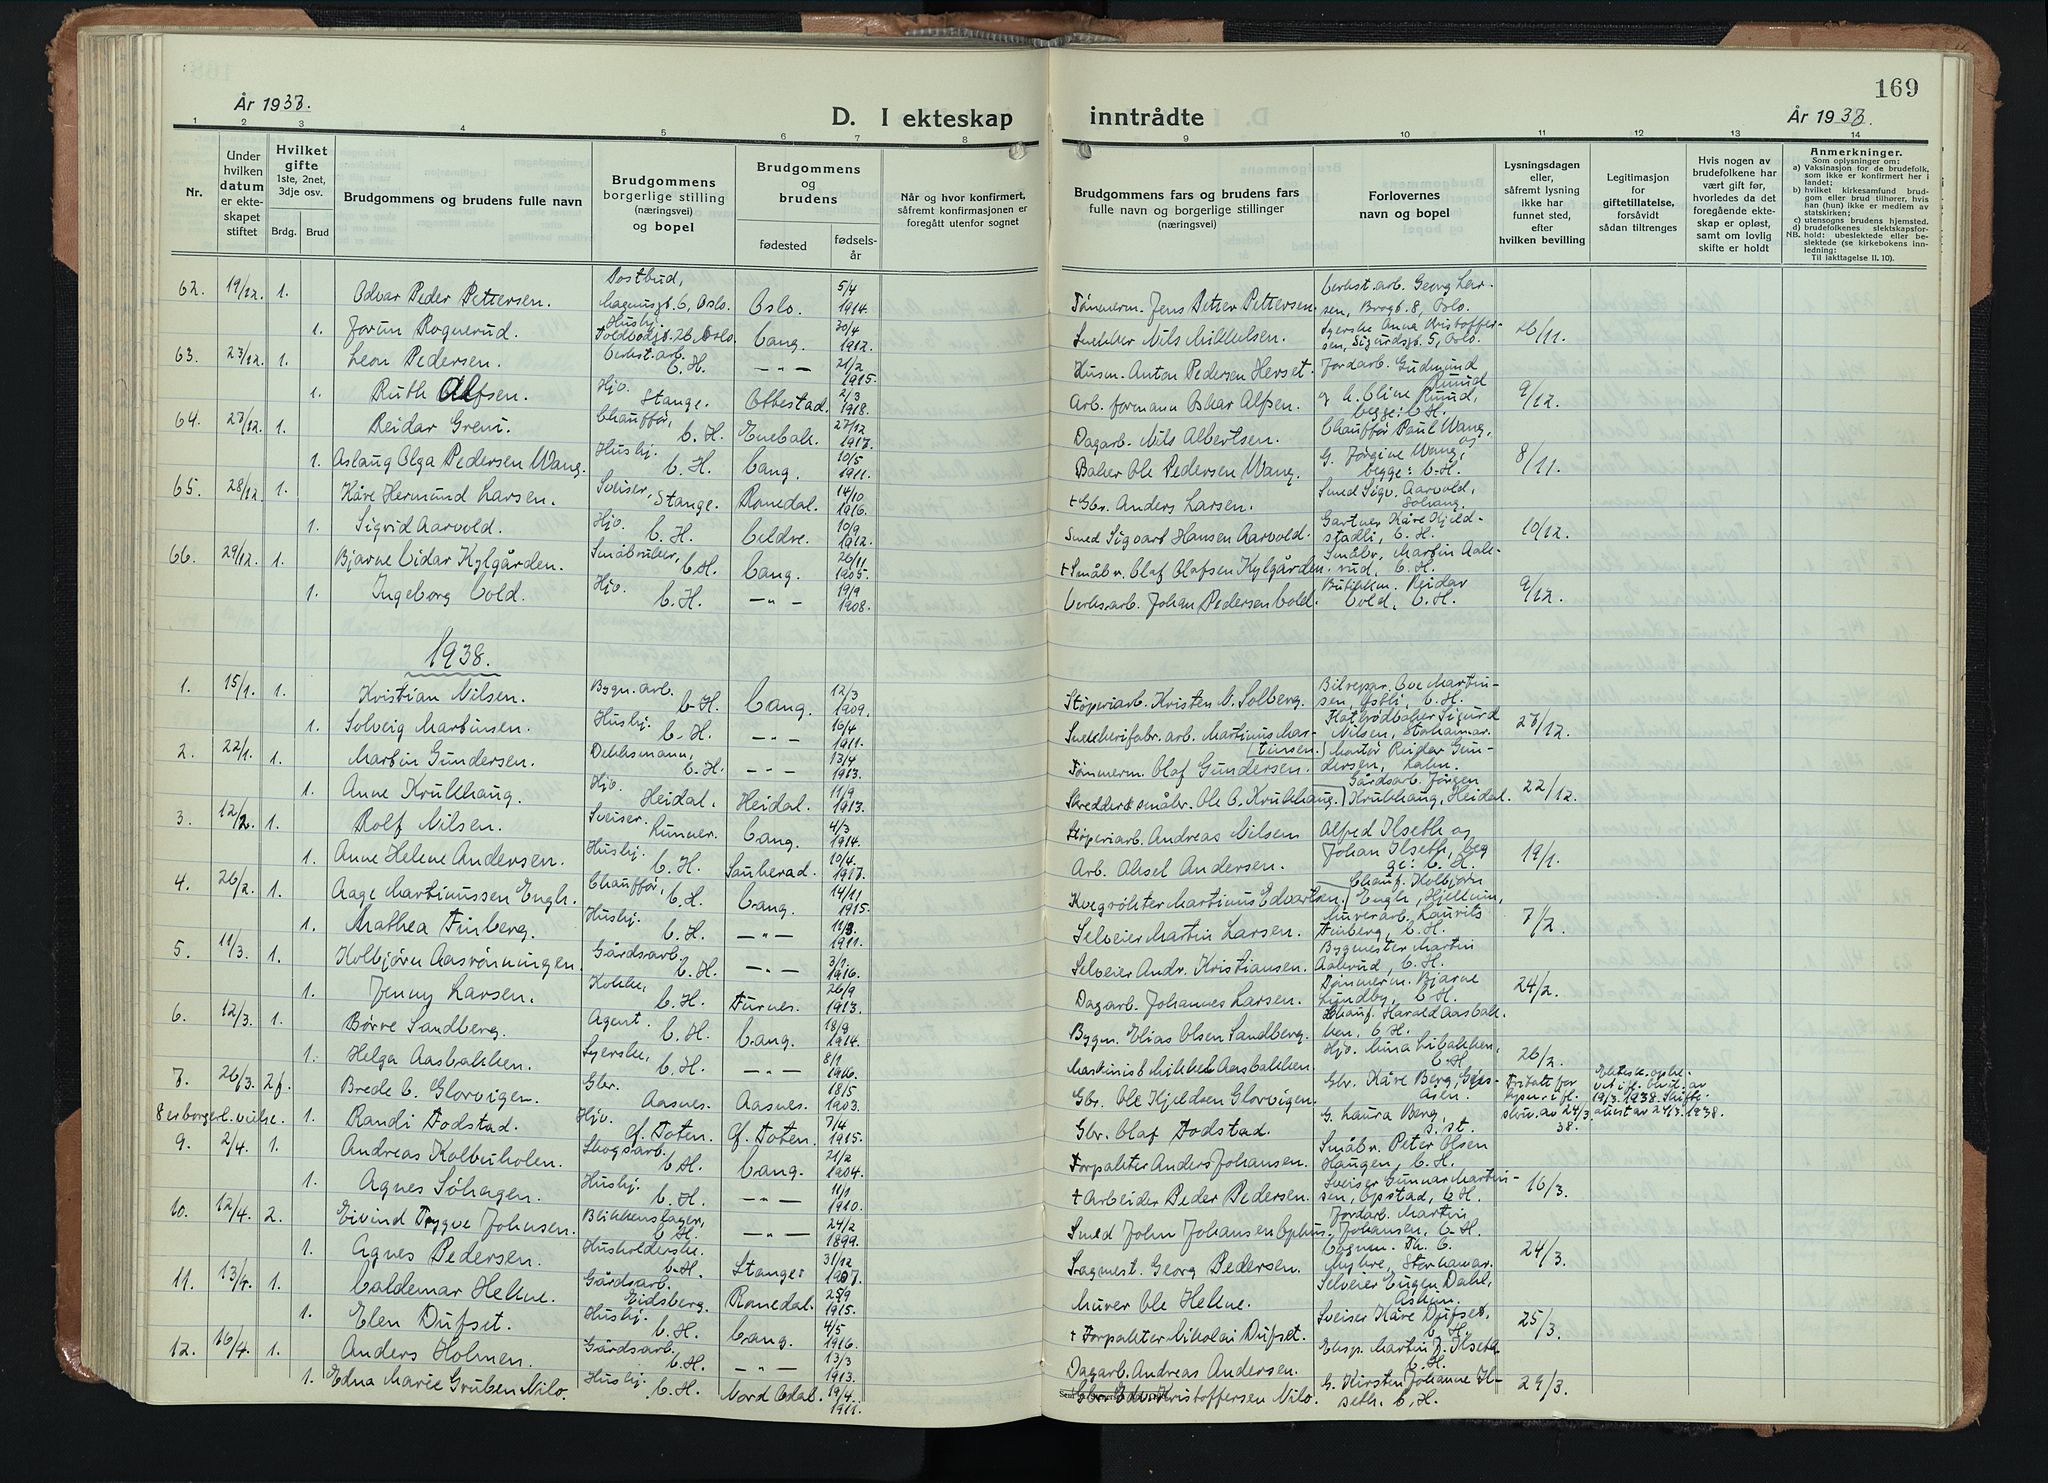 169
År 1937.
D. I ekteskap inntrådte
År 1937.
1 2 3 4 5 6 7 8 9 10 11 12 13 14
Nr.
Under hvilken datum er ekteskapet stiftet
Hvilket gifte 1ste, 2net, 3dje osv.
Brdg. Brud
Brudgommens og brudens fulle navn
Brudgommens borgerlige stilling (næringsvei) og bopel
Brudgommens og brudens
fødested
fødselsår
Når og hvor konfirmert, såfremt konfirmasjonen er foregått utenfor sognet
Brudgommens fars og brudens fars fulle navn og borgerlige stillinger (næringsvei)
Forlovernes navn og bopel
Lysningsdagen eller, såfremt lysning ikke har funnet sted, efter hvilken bevilling
Legitimasjon for giftetillatelse, forsåvidt sådan tiltrenges
Hvis nogen av brudefolkene har vært gift før, hvorledes da det foregående ekteskap er opløst, samt om lovlig skifte er holdt
Anmerkninger.
Som oplysninger om:
a) Vaksinasjon for de brudefolk, som ikke er konfirmert her i landet;
b) hvilket kirkesamfund brudgom eller brud tilhører, hvis han (hun) ikke er medlem av statskirken;
c) utensogns brudens hjemsted.
d) brudefolkenes slektskapsforhold: ubeslektede eller beslektede (se kirkebokens innledning:
NB.
Til iakttagelse II. 10).
62. 19/12. 1. Odvar Peder Pettersen. Postbud, Magnusgt. 6, Oslo. Oslo. 5/4 1914. Tømmerm. Jens Petter Pettersen.
1. Jorun Rognerud. Husbj. Oslo. Vang. 30/4 1912. Snekker Nils Mikkelsen. 26/11.
63. 27/12. 1. Leon Pedersen. Verkst.arb. V. H. — " — 21/2 1915. Husm. Anton Pedersen Herset. Jordarb. Gudmund Ruud
1. Ruth Alfsen. Hjv. Stange. Ottestad. 2/3 1918. Arb. formann Oskar Alfsen. begge: V. H. 9/12.
64. 27/12. 1. Reidar Greni. Chauffør, V. H. Enebak. 27/12 1917. Dagarb. Nils Albertsen. Chauffør Paul Wang, og
1. Aslaug Olga Pedersen Wang. Husbj. V. H. Vang. 10/5 1911. Baker Ole Pedersen Wang. G. Jørgine Wang, begge: V. H. 8/11.
65. 28/12. 1. Kåre Hermund Larsen. Sveiser, Stange. Romedal. 14/10 1916. + Gbr. Anders Larsen. Smed Sigv. Aarvold, Solvang.
1. Sigrid Aarvold. Hjv. V. H. Veldre. 10/9 1912. Smed Sigvart Hansen Aarvold. Gartner Kåre Kjeldstadli, V. H. 10/12.
66. 29/12. 1. Bjarne Vidar Kylgården. Småbruker, V. H. Vang. 26/11 1905. + Småbr. Olaf Olafsen Kylgården. Småbr. Martin Aalerud, V. H.
1. Ingeborg Vold. Hjv. V. H. — " — 19/9 1908. Verksarb. Johan Pedersen Vold. Butikkm. Reidar Vold, V. H. 9/12.
1938.
1. 15/1. 1. Kristian Nilsen. Bygn. arb. V. H. Vang. 12/3 1909. Støperiarb. Kristen N. Solberg. Bilrepar. Ove Martinsen, V. H.
1. Solveig Martinsen. Husbj. V. H. — " — 16/4 1911. Snekkerifabr. arb. Martinus Martinsen. Flatbrødbaker Sigurd Nilsen, Storhamar. 27/12.
2. 22/1. 1. Martin Gundersen. Dekksmann, V. H. — " — 13/4 1913. Tømmerm. Olaf Gundersen. Reidar Gundersen,
1. Anne Krukhaug. Hjv. Heidal. Heidal. 11/9 1913. Skredder & småbr. Ole O. Krukhaug. Gårdsarb. Jørgen Krukhaug, Heidal. 22/12.
3. 12/2. 1. Rolf Nilsen. Sveiser. Lunner. Vang. 4/3 1914. Støperiarb. Andreas Nilsen Alfred Ilseth og
1. Anne Helene Andersen. Husbj. V. H. Sauherad. 10/4. 1917. Arb. Aksel Andersen. Johan Ilseth, begge: V. H. 19/1.
4. 26/2. 1. Aage Martinussen Engh. Chauffør, V. H. Vang. 14/11 1915. Kvegrøkter Martinus Edvartsen. Chauf. Kolbjørn Engh, Hjellum,
1. Mathea Finberg. Husbj. V. H. — " — 11/3. 1911. Selveier Martin Larsen. Murerarb. Laurits Finberg, V. H. 7/2.
5. 11/3. 1. Kolbjørn Aasrønningen. Gårdsarb. V. H. — " — 3/1. 1916. Selveier Andr. Kristiansen. Bygmester Martin Aalerud, V. H.
1. Jenny Larsen. Kokke, V. H. Furnes. 26/9 1913. Dagarb. Johannes Larsen. Tømmerm. Bjarne Lundby, V. H. 24/2.
6. 12/3. 1. Børre Sandberg. Agent. V. H. Vang. 18/8 1914. Bygm. Elias Olsen Sandberg. Chauf. Harald Aasbakken, V. H.
1. Helga Aasbakken. Syerske, V. H. — " — 8/1 1916. Maskinist Mikkel Aasbakken. Hjv. Mina Libakken, V. H. 26/2.
7. 26/3. 2f. Brede O. Glorvigen. Gbr. Aasnes. Aasnes. 18/5 1903. Gbr. Ole Kjeldsen Glorvigen. Gbr. Kåre Berg,
8 er borgerl. vielse. 1. Randi Fodstad. Hjv. Ø. Toten. Ø. Toten. 7/4 1915. Gbr. Olaf Fodstad. G. Laura Berg, s. st.
9. 2/4. 1. Andreas Kolbuholen. Skogsarb. V. H. Vang. 21/2 1904. Forpakter Anders Johansen. Småbr. Peter Olsen Haugen, V. H.
1. Agnes Søhagen. Husbj. V. H. — " — 11/1 1910. + Arbeider Peder Pedersen. Sveiser Gunnar Martinsen, Opstad, V. H. 16/3.
10. 12/4. 2. Eivind Trygve Johnsen. Blikkenslager, V. H. — " — 24/2 1899. Smed John Johansen Ophus. Jordarb. Martin Johansen, V. H.
1. Agnes Pedersen. Husholderske. V. H. Stange. 31/12 1907. Sagmest. Georg Pedersen. Vognm. Th. O. Myhre, Storhamar. 24/3.
11. 13/4. 1. Valdemar Hekne. Gårdsarb. Eidsberg. Romedal. 25/9 1915. Murer Ole Hekne. Selveier Eugen Dahl. Askim.
1. Elen Dufset. Husbj. V. H. Vang. 4/5 1916. + Forpakter Nikolai Dufset. Sveiser Kåre Dufset, V. H. 25/3.
12. 16/4. 1. Anders Holmen. Gårdsarb. V. H. — " — 13/3 1913. Dagarb. Andreas Andersen. Eksp. Martin J. Ilseth V. H.
1. Edna Marie Gruben Nilo. Husbj. V. H. Nord Odal. 19/4. 1911. Kristoffersen Nilo. G. Kirsten Johanne Ilseth. V. H. 29/3.